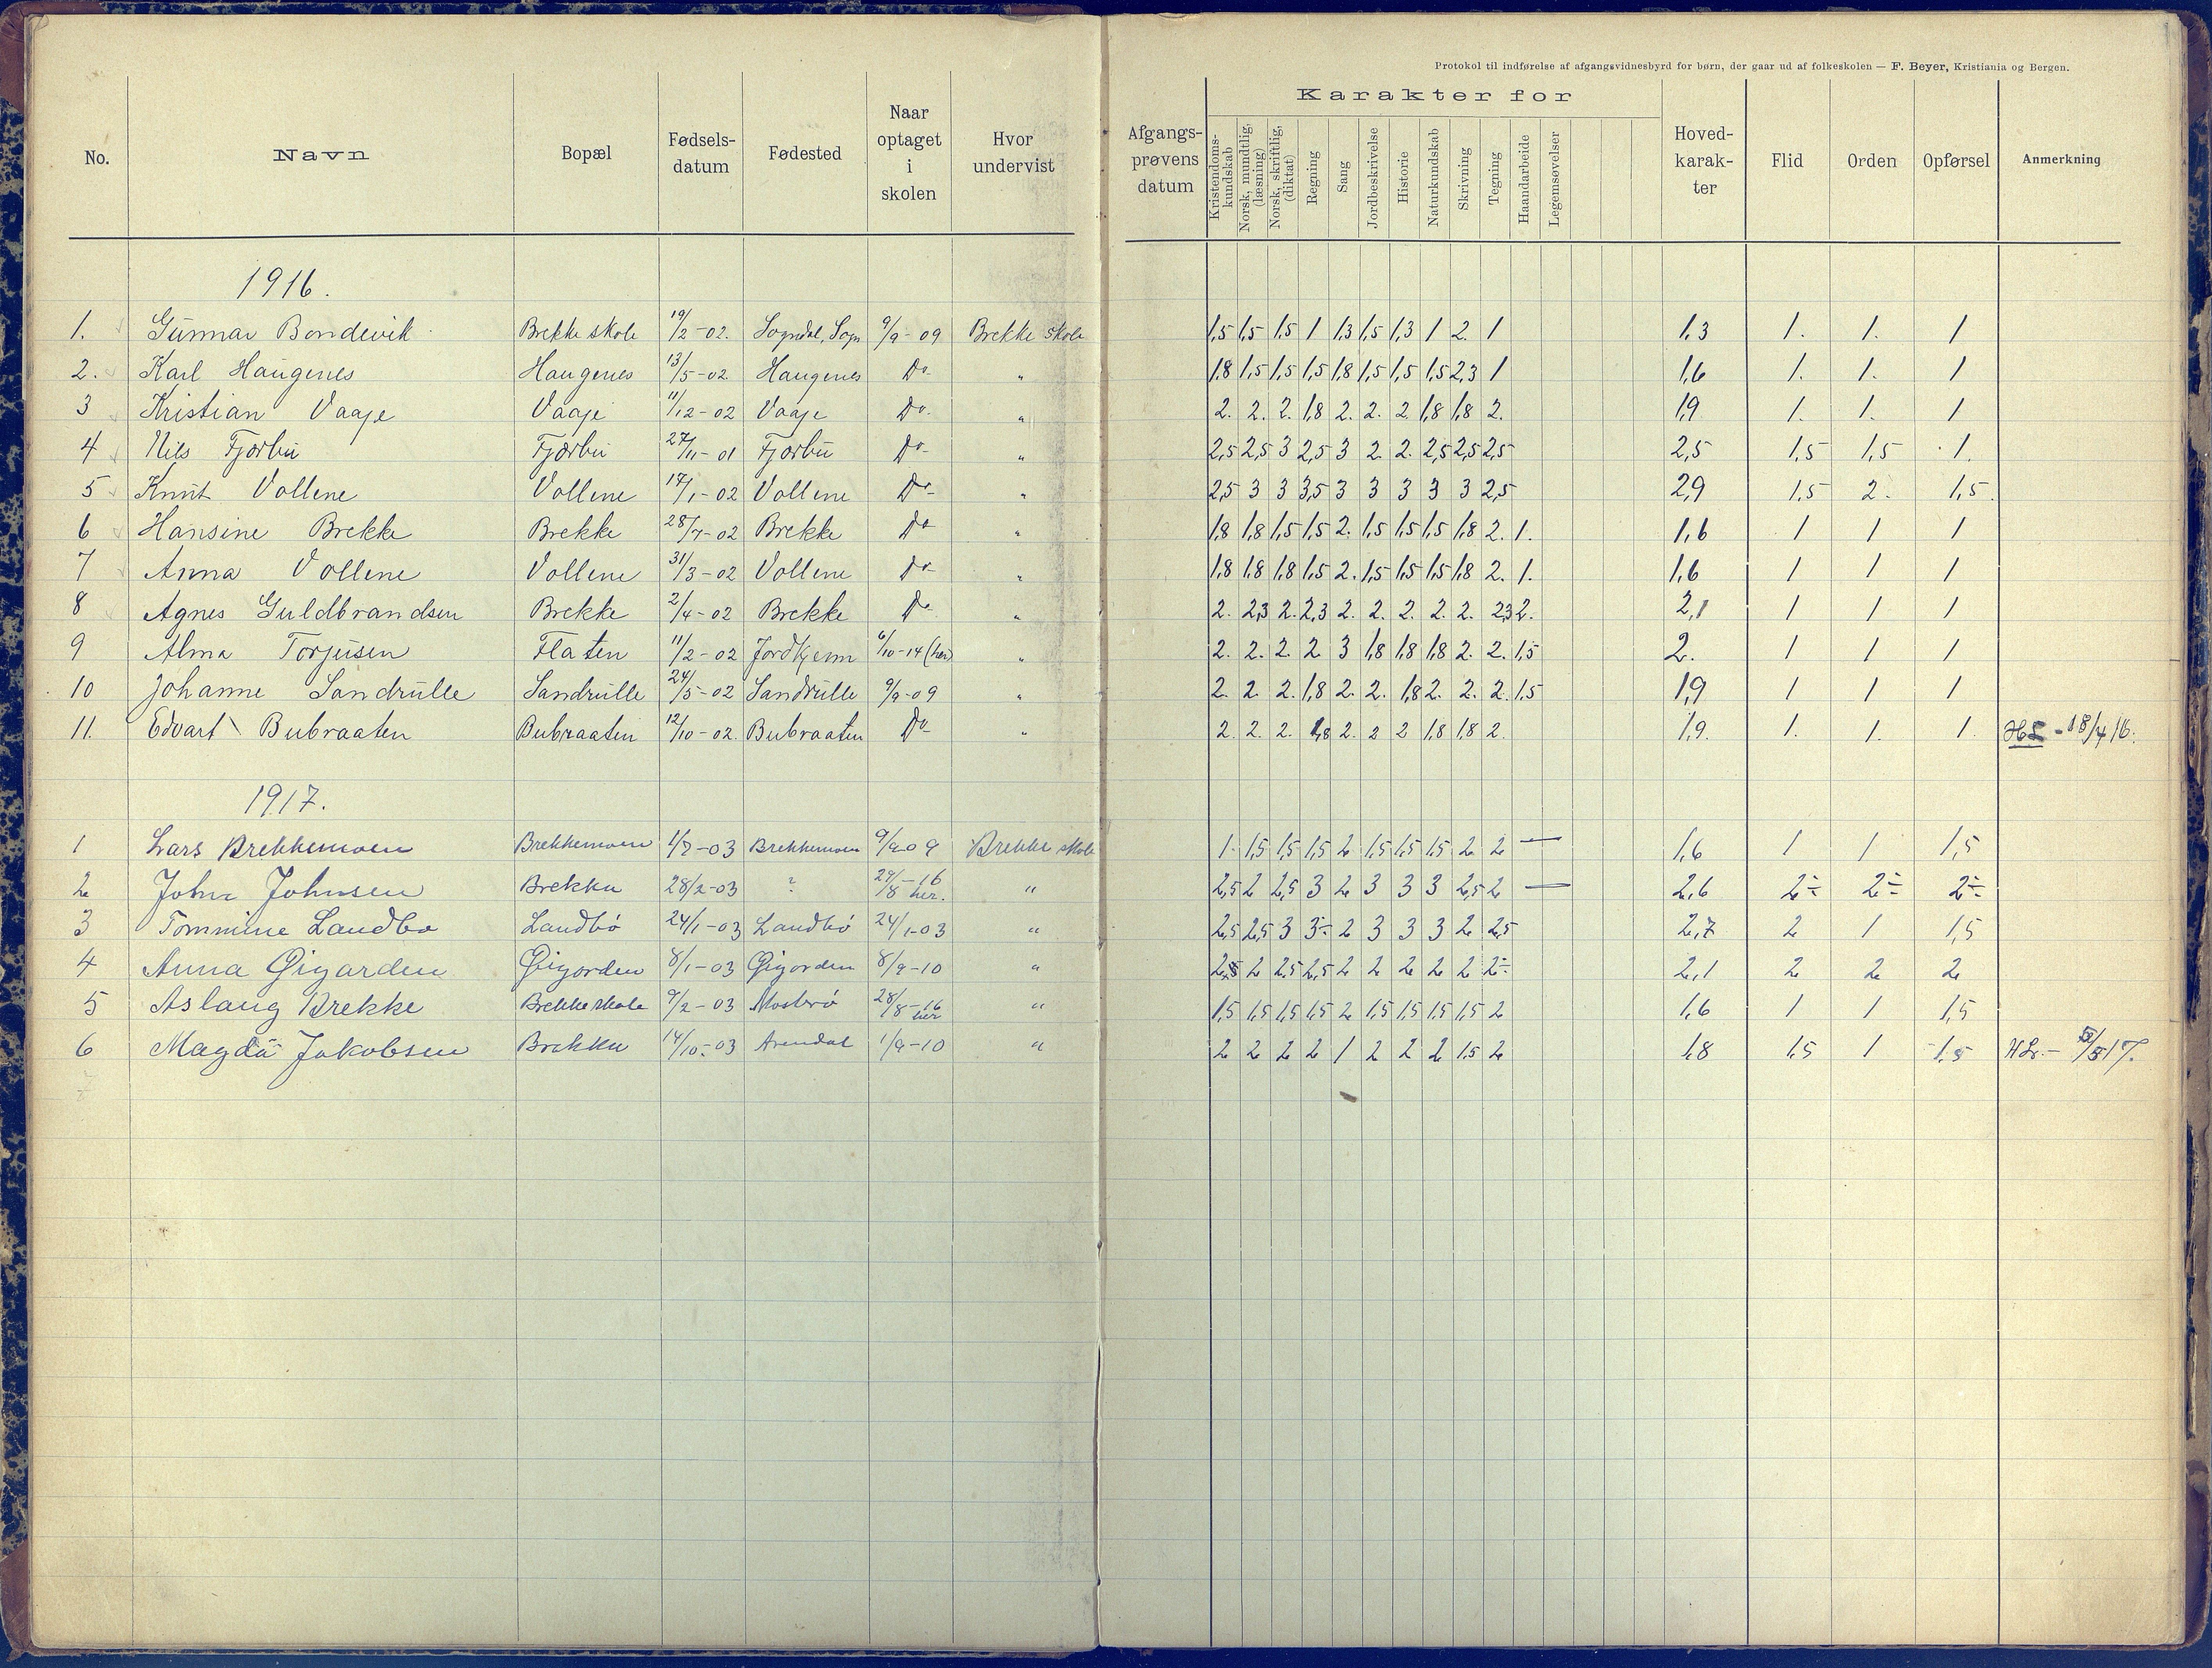 Protokol til indførelse af afgangsvidnesbyrd for børn, der gaar ud af folkeskolen — F. Beyer, Kristiania og Bergen.
Karakter for
No. Navn Bopæl Fødsels-datum Fødested Naar optaget i skolen Hvor undervist Afgangs-prøvens datum Kristendoms-kundskab Norsk, mundtlig, (læsning) Norsk, skriftlig, (diktat) Regning Sang Jordbeskrivelse Historie Naturkundskab Skrivning Tegning Haandarbeide Legemsøvelser Hoved-karak-ter Flid Orden Opførsel Anmerkning
1916.
1. Gunnar Bondevik Brekke skole 19/2-02. Sogndal, Sogn 9/9-09 Brekke skole 1,5 1,5 1,5 1 1,3 1,5 1,3 1 2. 1 1,3 1. 1. 1
2. Karl Haugenes Haugenes 13/5-02 Haugenes Do- " 1,8 1,5 1,5 1,5 1,8 1,5 1,5 1,5 2,3 1 1,6 1. 1. 1
3 Kristian Vaaje Vaaje 11/12-02 Vaaje Do- " 2. 2. 2. 1,8 2. 2. 2 1,8 1,8 2. 1,9 1. 1. 1
4 Nils Fjørbu Fjørbu 27/11-01 Fjørbu Do- " 2,5 2,5 3 2,5 3 2 2. 2,5 2,5 2,5 2,5 1,5 1,5 1.
5 Knut Vollene Vollene 17/1-02 Vollene Do- " 2,5 3 3 3,5 3 3 3 3 3 2,5 2,9 1,5 2. 1,5.
6 Hansine Brekke Brekke 28/7-02 Brekke Do- " 1,8 1,8 1,5 1,5 2. 1,5 1,5 1,5 1,8 2. 1. 1,6 1 1 1
7 Anna Vollene Vollene 31/3-02 Vollene Do- " 1,8 1,8 1,8 1,5 2. 1,5 1,5 1,5 1,8 2. 1. 1,6 1 1 1
8 Agnes Guldbrandsen Brekke 2/4-02 Brekke Do- " 2. 2,3 2. 2,3 2. 2. 2. 2. 2. 2,3 2. 2,1 1 1 1
9 Alma Torjusen Flaten 11/2-02 Jordkjenn 6/10-14 (her) " 2. 2. 2. 2 3 1,8 1,8 1,8 2. 2. 1,5 2. 1 1 1
10 Johanne Sandrulle Sandrulle 24/5-02 Sandrulle 9/9-09 " 2. 2 2. 1,8 2. 2. 1,8 2. 2. 2. 1,5 1,9 1 1 1
11. Edvart Bubraaten Bubraaten 12/10-02. Bubraaten Do- " 2. 2. 2. 1,8 2. 2 2 1,8 1,8 2. 1,9. 1. 1. 1. 18/4 16.
1917.
1 Lars Brekkemoen Brekkemoen 1/7-03 Brekkemoen 9/9-09 Brekke skole 1. 1,5 1,5 1,5 2 1,5 1,5 1,5 2 2 — 1,6 1 1 1,5
2 John Johnsen Brekka 28/2-03 ? 29/8-16 her. " 2,5 2 2,5 3 2 3 3 3 2,5 2 — 2,6 2÷ 2÷ 2÷
3 Tommine Landbø Landbø 24/1-03 Landbø 24/1-03 " 2,5 2,5 3 3÷ 2 3 3 3 2 2,5 2,7 2 1 1,5
4 Anna Øigarden Øigorden 8/1-03 Øigorden 8/9-10 " 2,5 2 2,5 2,5 2 2 2 2 2 2÷ 2,1 2 2 2
5 Aslaug Brekke Brekke skole 9/2-03 28/8-16 her " 1,5 1,5 1,5 1,5 2 1,5 1,5 1,5 1,5 2 1,6 1 1 1,5
6 Magda Jakobsen Brekka 14/10-03 Arendal 1/9-10 " 2 2 2 2 1 2 2 2 1,5 2 1,8 1,5 1 1,5 5/5 17.